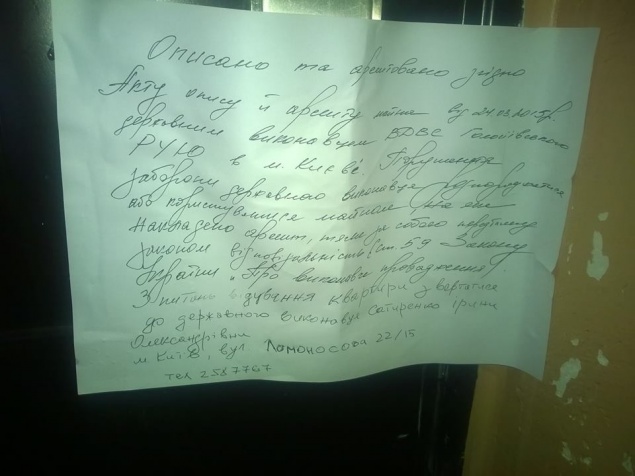 Описано та арештовано згідно
Акту опису й арешту майна від 24.03.
державним виконавцем ВДВС Голосіївського
РУЮ в м. Києві. Порушення
заборони державного виконавця розпоряджатися
або користуватися майном, на яке
накладено арешт, тягне за собою
законом відповідальність (ст. 5 Закону
України "Про виконавче провадження")
З питань відування квартири звертатися
до державного виконавця Сатиренко Ірини
Олександрівни
м. Київ, вул Ломоносова 22/15
тел 2587767